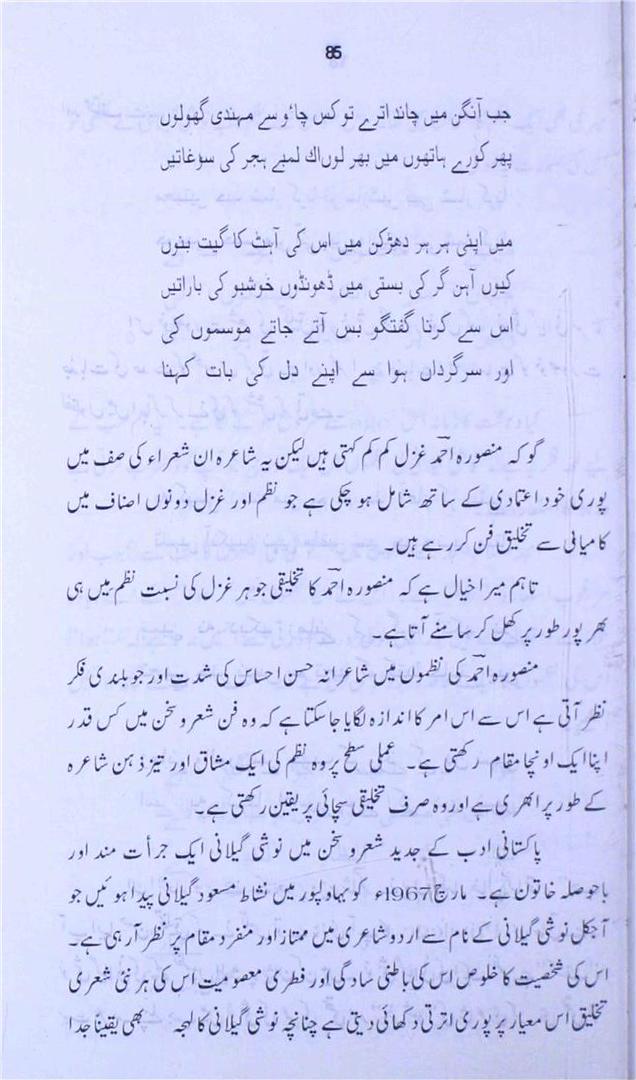 85
جب آنگن میں چاند اترے تو کس چاٴو سے مہندی گھولوں
پھر کورے ہاتھوں میں بھر لوں اك لمبے ہجر کی سوغاتیں
میں اپنی ہر ہر دھڑکن میں اس کی آہٹ کا گیت بنوں
کیوں آہن گر کی بستی میں ڈھونڈوں خوشبو کی باراتیں
اس سے کرنا گفتگو بس آتے جاتے موسموں کی
اور سرگرداں ہوا سے اپنے دل کی بات کہنا
گو کہ منصورہ احمد غزل کم کم کہتی ہیں لیکن یہ شاعرہ ان شعراء کی صف میں
پوری خود اعتمادی کے ساتھ شامل ہو چکی ہے جو نظم اور غزل دونوں اصناف میں
کامیابی سے تخلیق فن کر رہے ہیں۔
تاہم میرا خیال ہے کہ منصورہ احمد کا تخلیقی جوہر غزل کی نسبت نظم میں ہی
بھرپور طور پر کھل کر سامنے آتا ہے۔
منصورہ احمد کی نظموں میں شاعرانہ حسن احساس کی شدت اور جو بلندی فکر
نظر آتی ہے اس سے اس امر کا اندازہ لگایا جا سکتا ہے کہ وہ فن شعر و سخن میں کس قدر
اپنا ایک اونچا مقام رکھتی ہے۔ عملی سطح پر وہ نظم کی ایک مشاق اور تیز ذہن شاعرہ
کے طور پر ابھری ہے اور وہ صرف تخلیقی سچائی پر یقین رکھتی ہے۔
پاکستانی ادب کے جدید شعر و سخن میں نوشی گیلانی ایک جرأت مند اور
باحوصلہ خاتون ہے۔ مارچ 1967ء کو بہاولپور میں نشاط مسعود گیلانی پیدا ہوئیں جو
آجکل نوشی گیلانی کے نام سے اردو شاعری میں ممتاز اور منفرد مقام پر نظر آ رہی ہے۔
اس کی شخصیت کا خلوص اس کی باطنی سادگی اور فطری معصومیت اس کی ہر نئی شعری
تخلیق اس معیار پر پوری اترتی دکھائی دیتی ہے چنانچہ نوشی گیلانی کا لہجہ بھی یقینا جدا